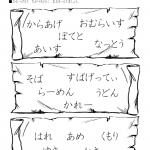 からあげ おむらいす
ぽてと
あいす なっとう
そば すぱげってぃ
らーめん うどん
かれー
はれ あめ くもり